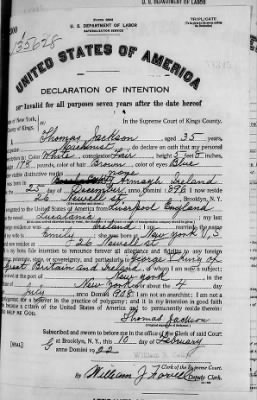 U. S. DEPARTMENT OF LABOR
U. S. DEPARTMENT OF LABOR
NATURALIZATION SERVICE
TRIPLICATE
135628
UNITED STATES OF AMERICA
DECLARATION OF INTENTION
Invalid for all purposes seven years after the date hereof
of New York,
ty of Kings,
In the Supreme Court of Kings County.
Thomas Jackson aged 35 years,
Machinist, do declare on oath that my personal
is: Color White, complexion Fair, height 5 feet 5 inches,
pounds, color of hair Brown, color of eyes Blue
visible distinctive marks none
Armagh Ireland
25 day of December, anno Domini I now reside
26 Newell St Brooklyn, N.Y.
grated to the United States of America from Liverpool England
Lusitania; my last
residence was Ireland; I am married; the name
Emily; she was born at New York U.S.
26 Newell St
my bona fide intention to renounce forever all allegiance and fidelity to any foreign
state, or sovereignty, and particularly to George V King of
Great Britain and Ireland, of whom I am now a subject;
at the port of New York, in the
New York, on or about the 4 day
July, anno Domini I am not an anarchist; I am not a
polygamist nor a believer in the practice of polygamy; and it is my intention in good faith
to become a citizen of the United States of America and to permanently reside therein:
HELP ME GOD.
Thomas Jackson
Subscribed and sworn to before me in the office of the Clerk of said Court
[SEAL] at Brooklyn, N.Y., this 10 day of February
anno Domini 1922
Clerk of the Supreme Court.
By William J. Deputy Clerk.